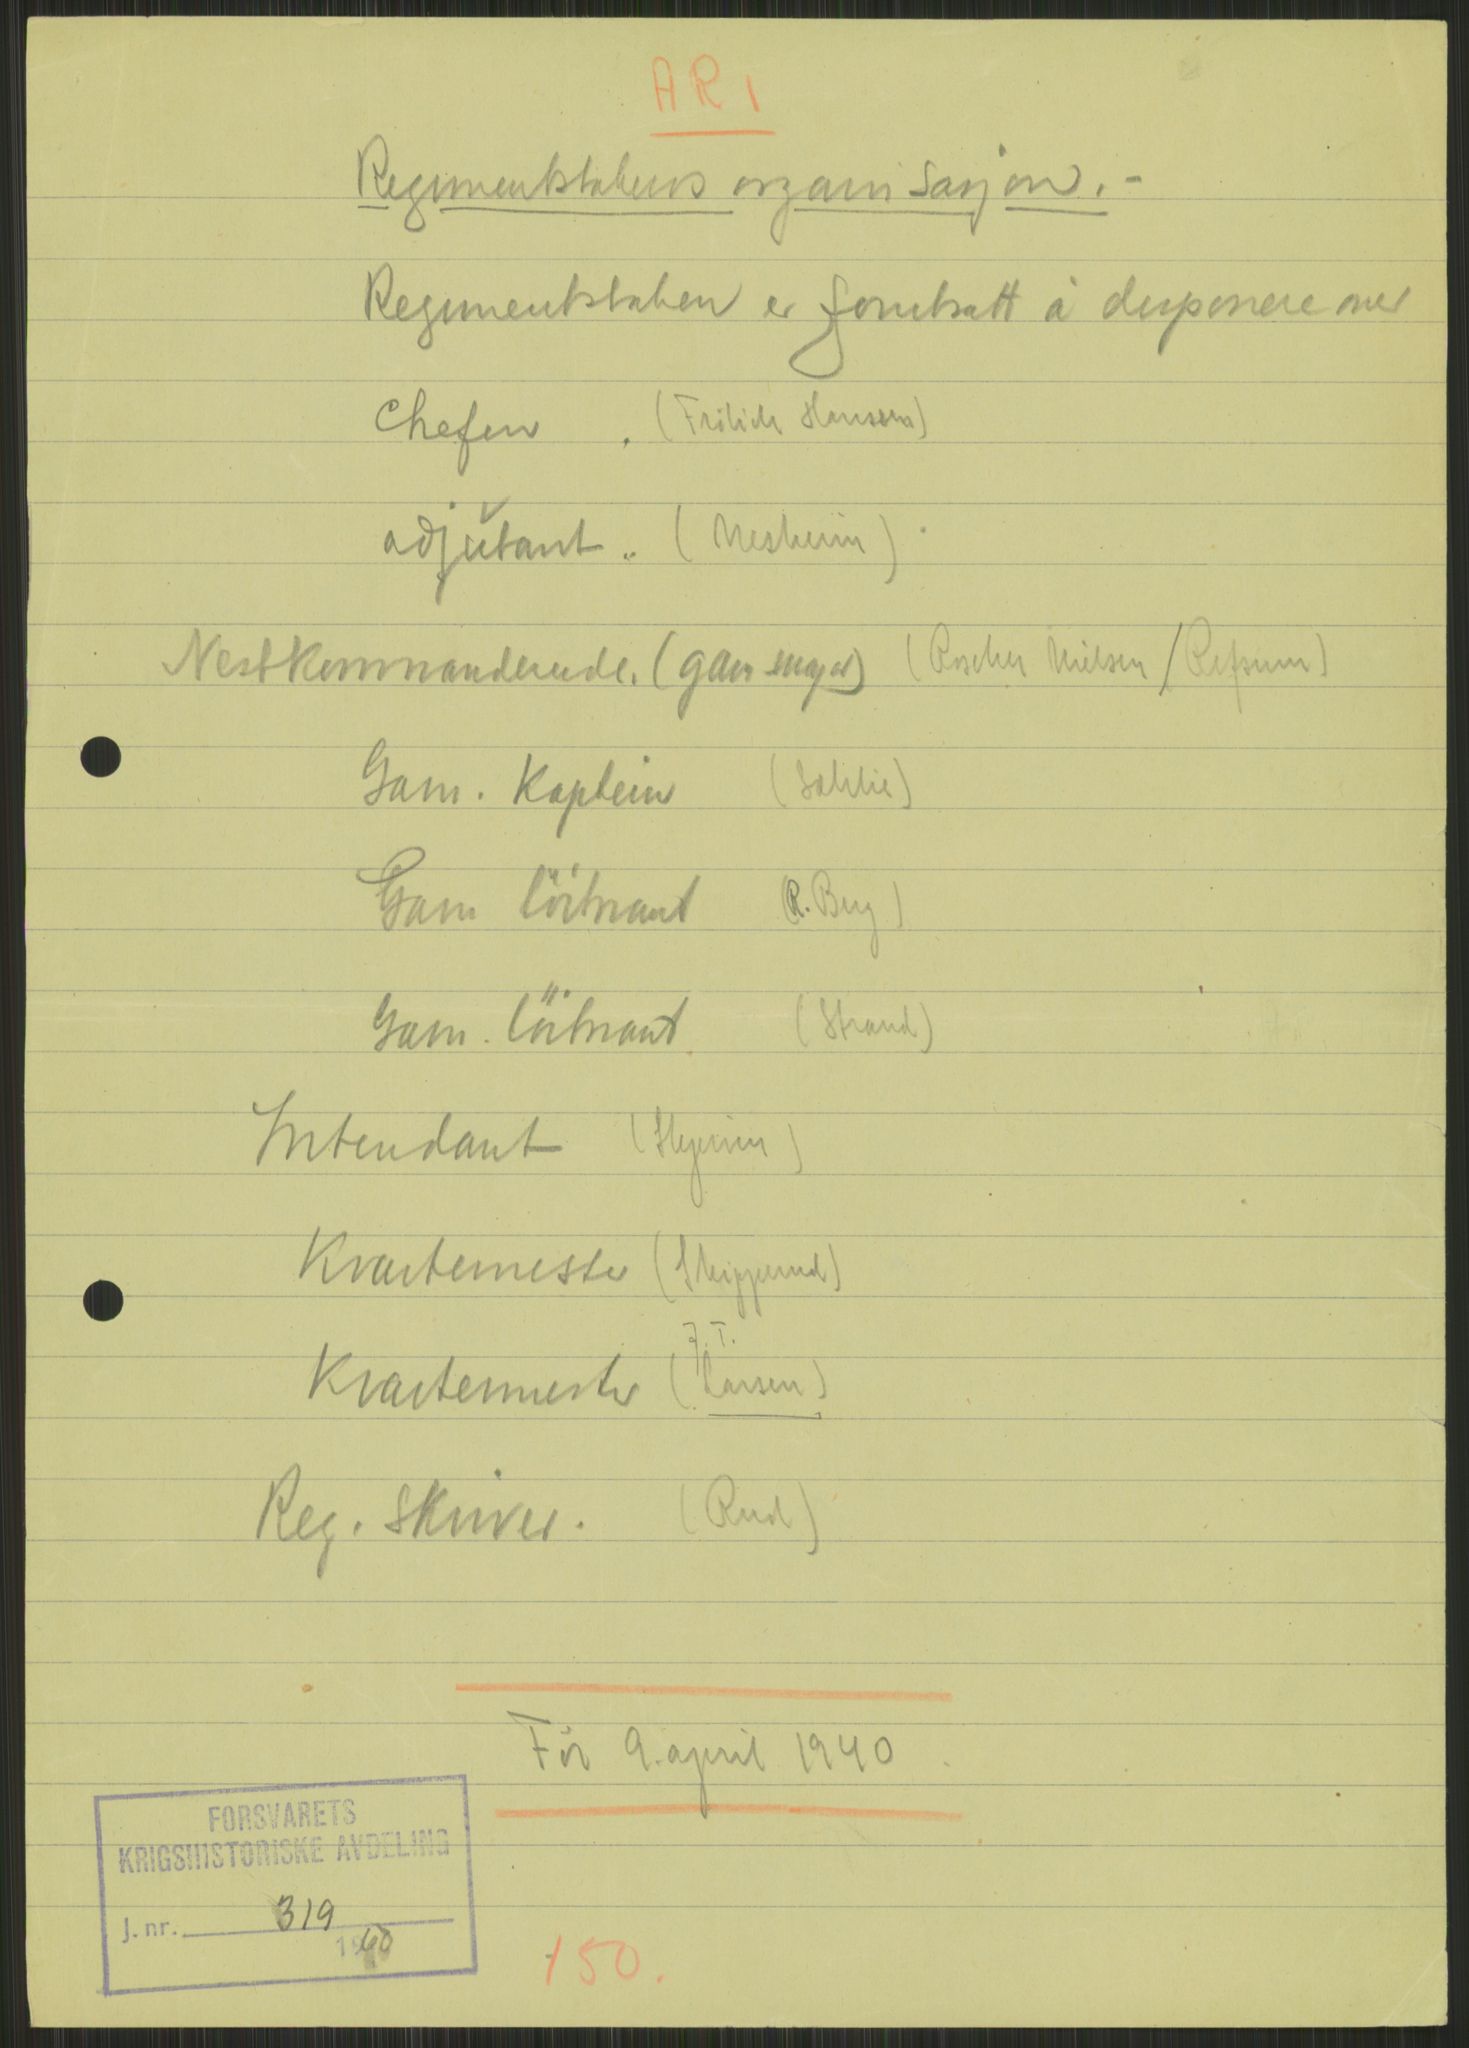 AR 1
Regimentstabens organisasjon.-
Regimentstaben er forutsatt å disponere over
Chefen . (Frölich Hanssen)
adjutant .. (Nesheim)
Nestkommanderende. (gam major) (Roscher Nielsen / Refsum)
Gam. Kaptein
Gam löitnant (R. Berg)
Gam. löitnant (Strand)
Intendant
Kvartermester
J. T.
Kvartermester (Larsen)
Reg. skriver. (Rud)
För 9. april 1940
FORSVARETS
KRIGSHISTORISKE AVDELING
J. nr. 319
1960
150.